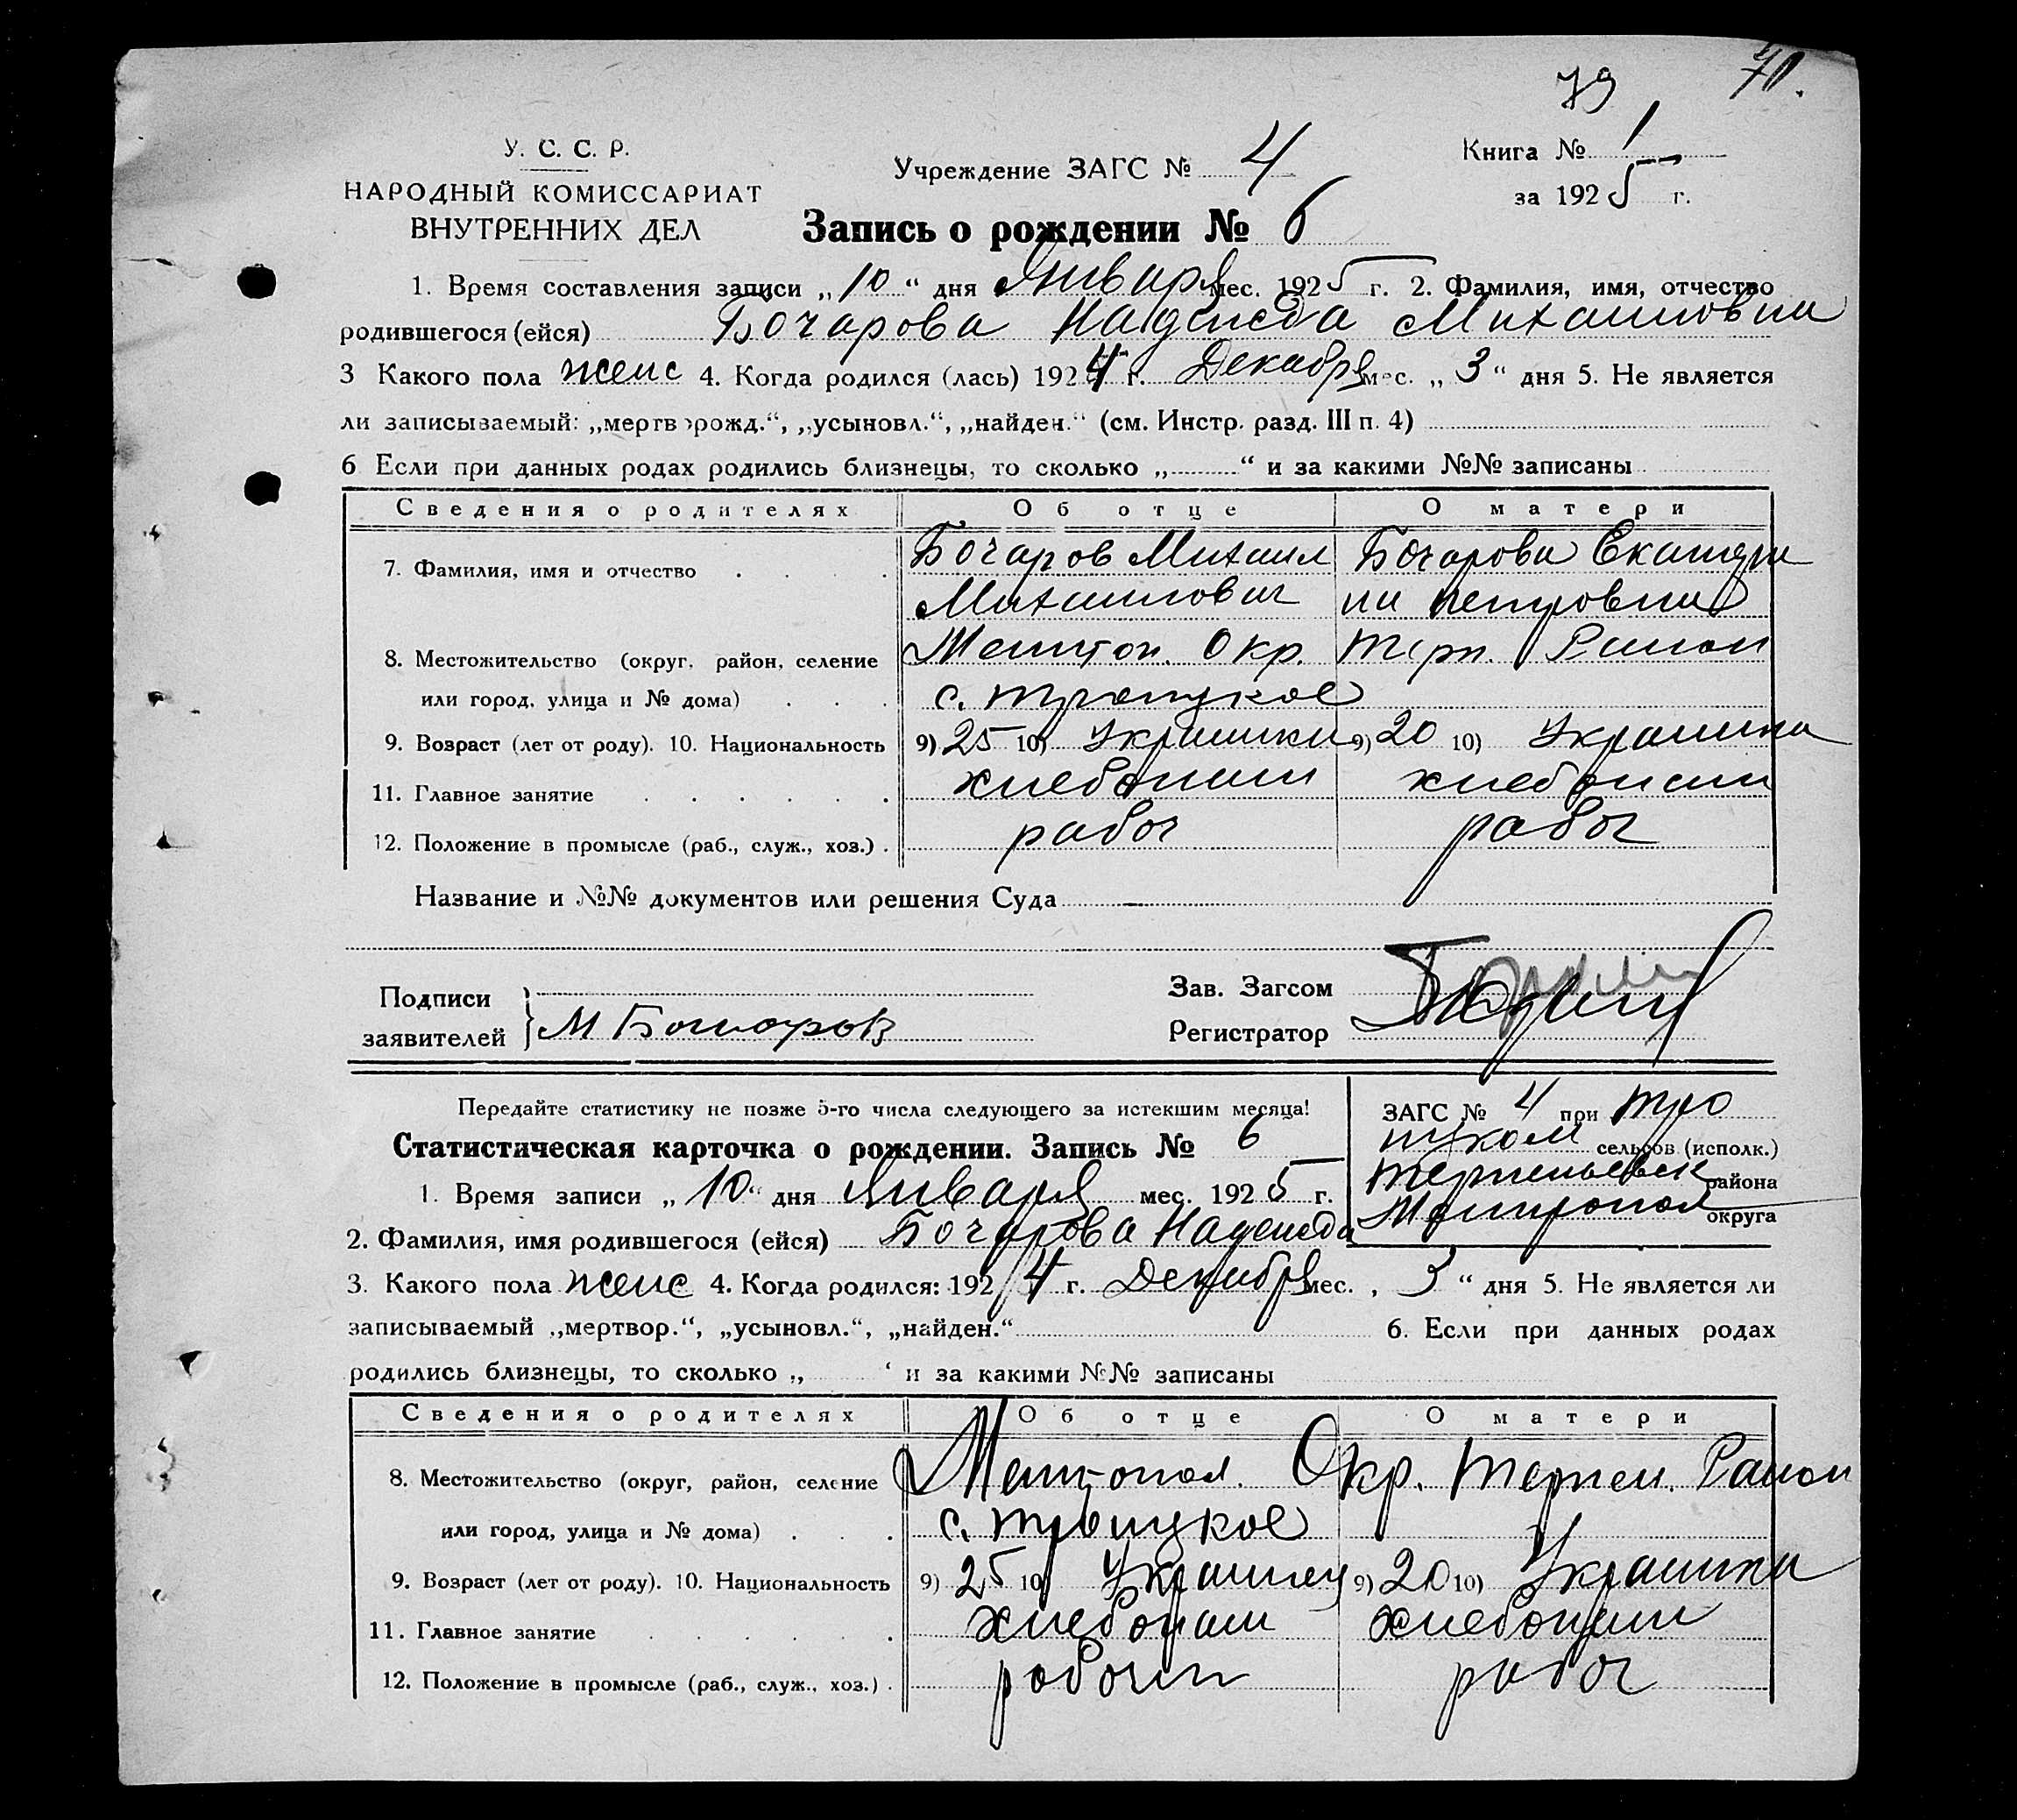 79 70.
У. С. С. Р.
НАРОДНЫЙ КОМИССАРИАТ
ВНУТРЕННИХ ДЕЛ
Учреждение ЗАГС № 4
Книга № 1
за 1925 г.
Запись о рождении № 6
1. Время составления записи „10“ дня Января мес. 1925 г. 2. Фамилия, имя, отчество
родившегося (ейся) Бочарова Надежда Михайловна
3 Какого пола женс 4. Когда родился (лась) 1924 г. Декабря мес. „3“ дня 5. Не является
ли записываемый: „мертворожд.“, „усыновл.“, „найден.“ (см. Инстр. разд. III п. 4)
6 Если при данных родах родились близнецы, то сколько „ “ и за какими №№ записаны
Сведения о родителях Об отце О матери
7. Фамилия, имя и отчество Бочаров Михаил Бочарова Екатери
Михайлович на Петровна
8. Местожительство (округ, район, селение Мелитоп. Окр. Терп. Район
или город, улица и № дома) с. Троицкое
9. Возраст (лет от роду). 10. Национальность 9) 25 10) 9) 20 10) Украинка
11. Главное занятие хлебопаш хлебопаш
12. Положение в промысле (раб., служ., хоз.) рабоч рабоч
Название и №№ документов или решения Суда
Подписи
заявителей М Бочаров
Зав. Загсом
Регистратор
Передайте статистику не позже 5-го числа следующего за истекшим месяца!
Статистическая карточка о рождении. Запись № 6
ЗАГС № 4 при Тро
ицком сельсов (исполк.)
Терпеньевск района
Мелитопол округа
1. Время записи „10“ дня Января мес. 1925 г.
2. Фамилия, имя родившегося (ейся) Бочарова Надежда
3. Какого пола женс 4. Когда родился: 1924 г. Декабря мес. „3“ дня 5. Не является ли
записываемый „мертвор.“, „усыновл.“, „найден.“ 6. Если при данных родах
родились близнецы, то сколько „ “ и за какими №№ записаны
Сведения о родителях Об отце О матери
8. Местожительство (округ, район, селение Мелитопол. Окр. Терпен. Район
или город, улица и № дома) с. Троицкое
9. Возраст (лет от роду). 10. Национальность 9) 25 10) Украинец 9) 20 10) Украинка
11. Главное занятие хлебопаш хлебопаш
12. Положение в промысле (раб., служ., хоз.) рабочи рабоч